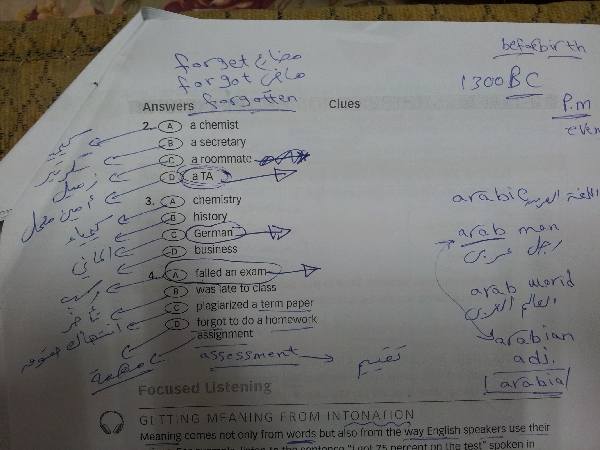 forget مضارع
forgot ماضي
forgotten
before birth
1300 BC
P.m
Answers
Clues
2. A a chemist
B a secretary
C a roommate
D a TA
3. A chemistry
B history
C German
D business
4. A failed an exam
B was late to class
C plagiarized a term paper
D forgot to do a homework
assignment
سكرتير
زميل
أمين معمل
كيمياء
الماني
مهمة
assessment
تقييم
arabic اللغة العربية
arab man
رجل عربي
arab world
العالم العربي
arabian
adj.
arabia
Focused Listening
GETTING MEANING FROM INTONATION
Meaning comes not only from words but also from the way English speakers use their
listen to the sentence "I got 75 percent on the test" spoken in